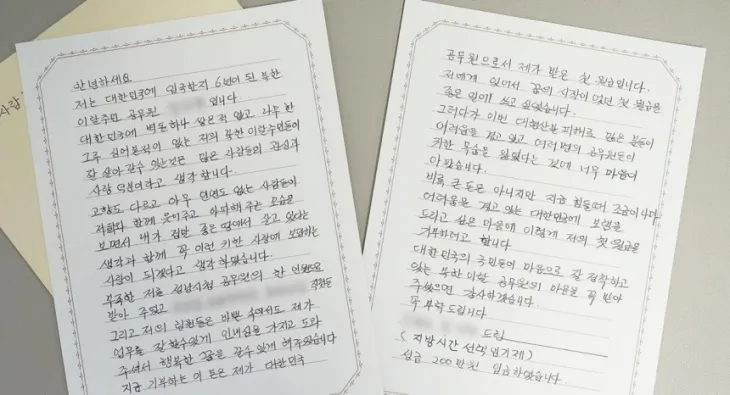 안녕하세요
저는 대한민국에 입국한지 6년이 된 북한
이탈주민 공무원 입니다.
대한민국에 벽돌하나 쌓은적 없고 나무 한
그루 심어본적이 없는 저와 북한 이탈주민들이
잘 살아 갈수 있는것은 많은 사람들의 관심과
사랑 덕분이라고 생각 합니다.
고향도 다르고 아무 연연도 없는 사람들이
저희와 함께 웃어주고 아파해 주는 모습을
보면서 내가 정말 좋은 땅에서 살고 있다는
생각과 함께 꼭 이런 귀한 사랑에 보답하는
사람이 되겠다고 생각 하였습니다.
부족한 저를 성남시청 공무원의 한 인원으로
받아 주었고 직원들
그리고 저의 팀원들은 바쁜 속에서도 제가
업무를 잘 할수있게 인내심을 가지고 도와
주셔서 행복한 꿈을 꿀수 있게 해주었습니다
지금 기부하는 이 돈은 제가 대한민국
사람
공무원으로서 제가 받은 첫 월급입니다.
저에게 있어서 꿈의 시작이 었던 첫 월급은
좋은 일에 쓰고 싶었습니다.
그러다가 이번 대형산불 피해로 많은 분들이
어려움을 겪고 있고 여러명의 공무원들이
귀한 목숨을 잃었다는 것에 너무 마음이
아팠습니다.
비록 큰 돈은 아니지만 지금 힘들때 조금이나마
어려움을 겪고 있는 대한민국에 보탬을
드리고 싶은 마음에 이렇게 저의 첫 월급을
기부하려고 합니다.
대한민국의 국민들이 마음으로 잘 정착하고
있는 북한 이탈 공무원의 마음을 꼭 받아
주셨으면 감사하겠습니다.
꼭 부탁드립니다.
드림
(지방시간 선택임기제)
성금 200만원 입금하였습니다.